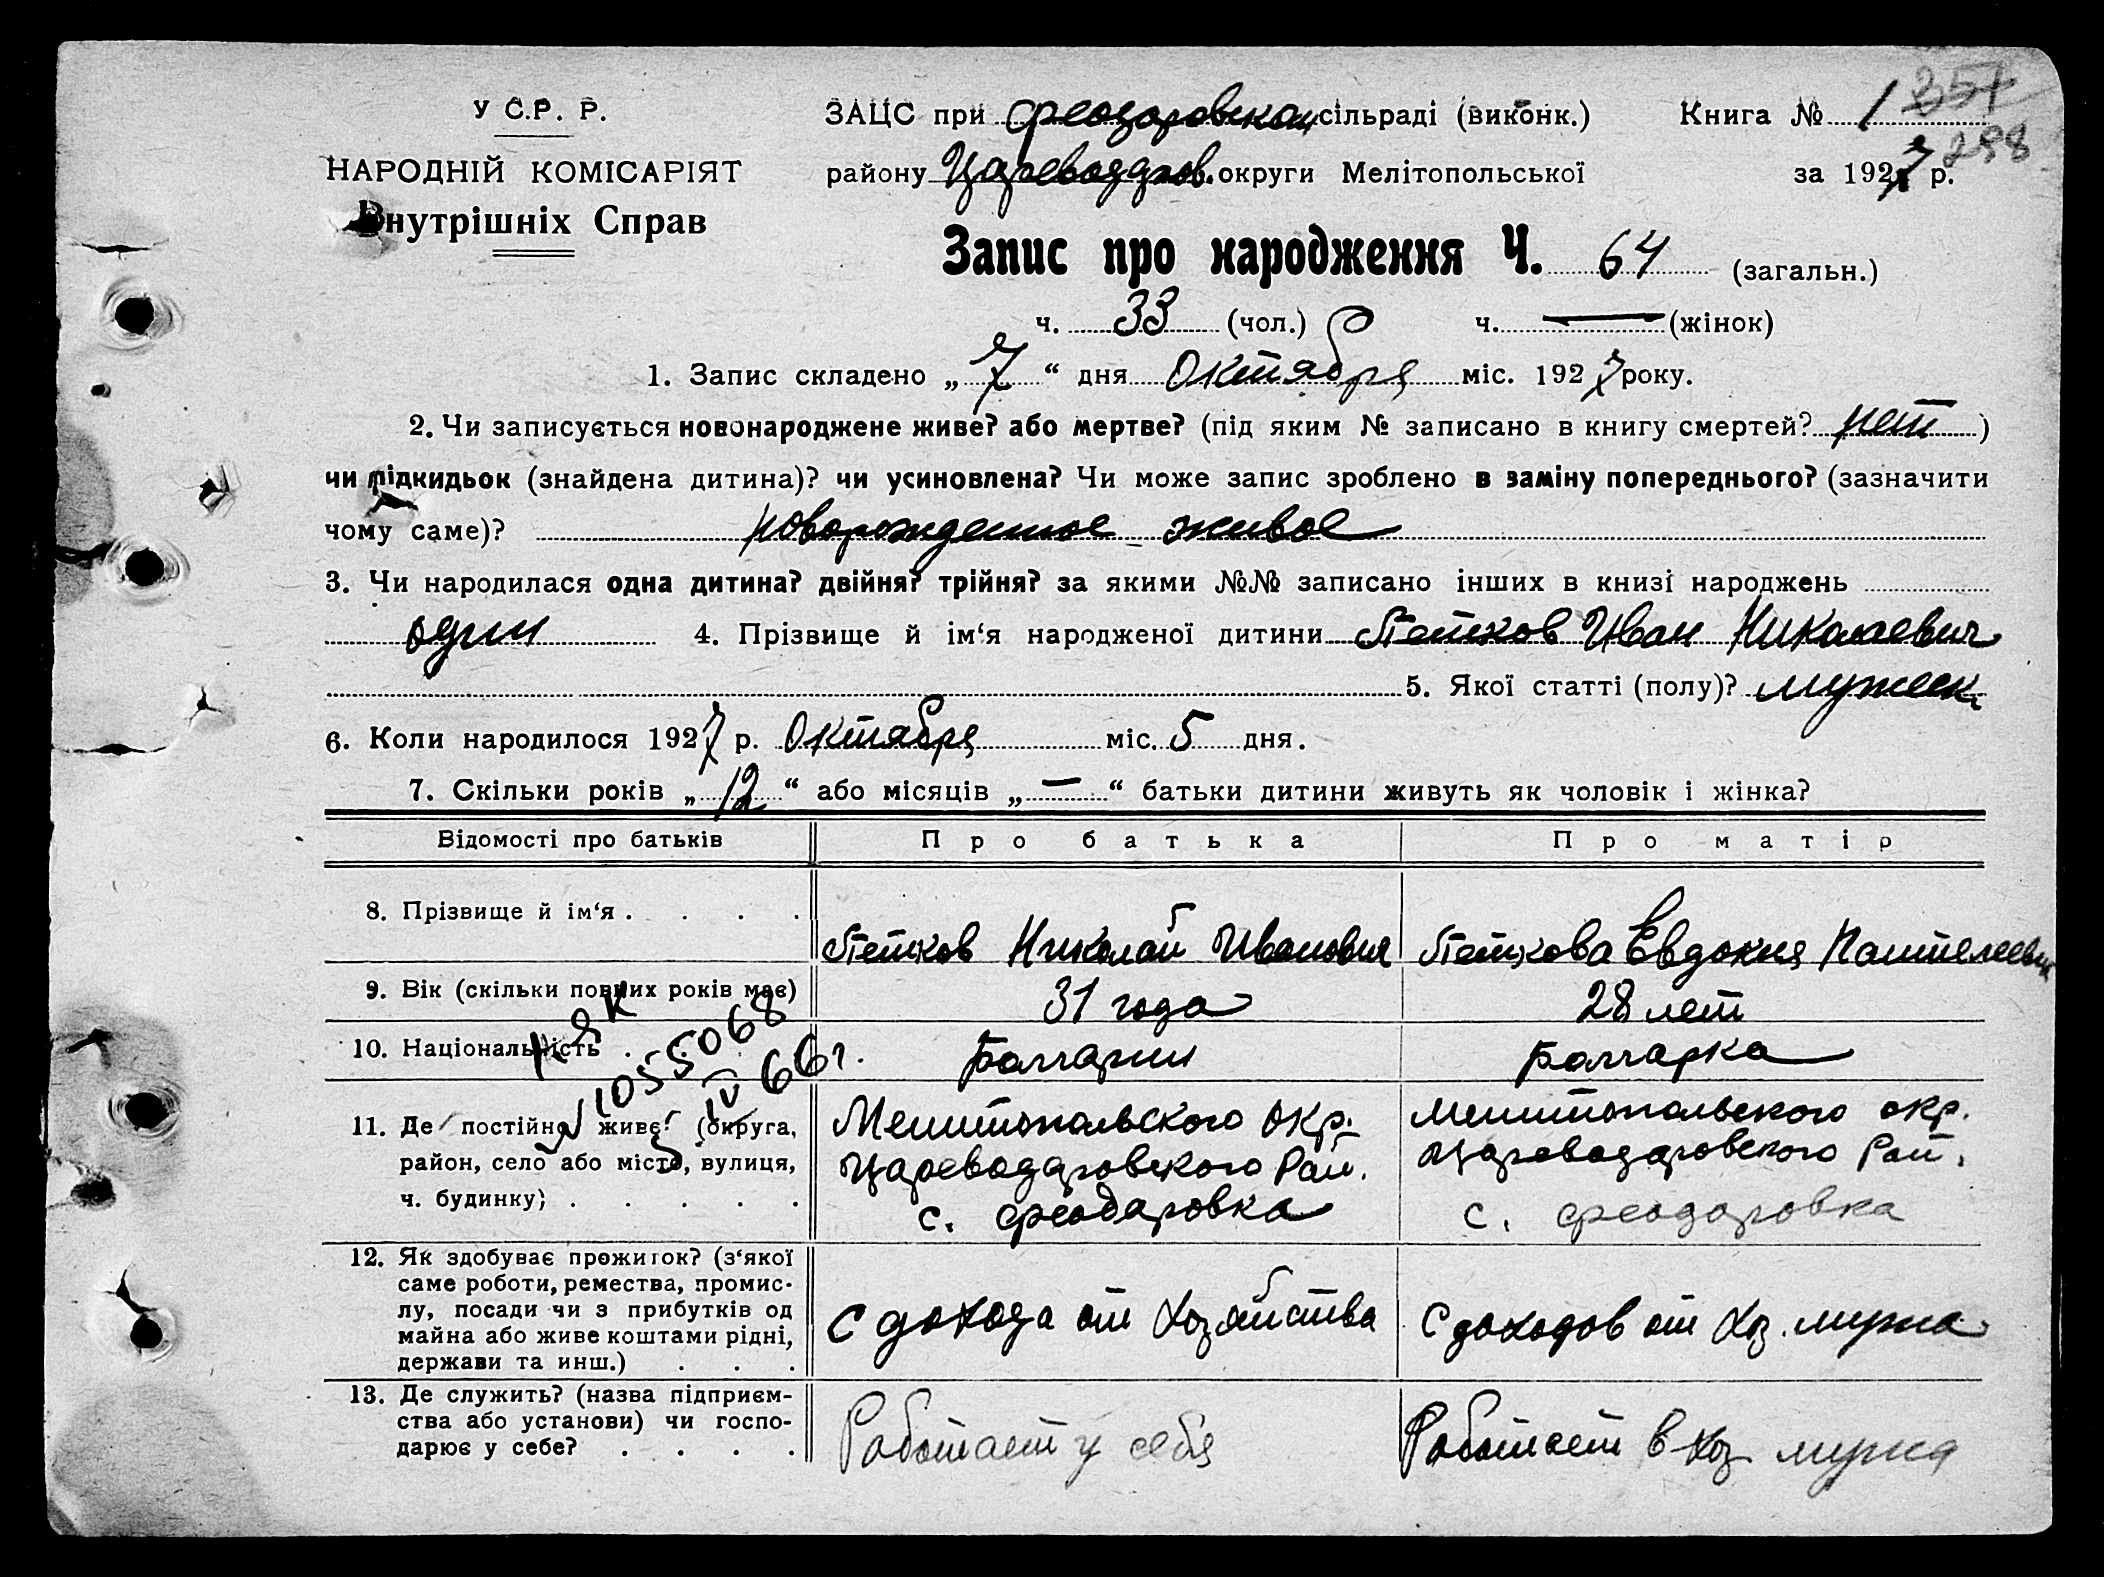 У С.Р.Р.
НАРОДНІЙ КОМІСАРІЯТ
Внутрішніх Справ
ЗАЦС при Феодоровском сільраді (виконк.) Книга № 1 357
288
району Цареводаров. округи Мелітопольської за 1927 р.
Запис про народження Ч. 64 (загальн.)
ч. 33 (чол.) ч. — (жінок)
1. Запис складено „7“ дня Октября міс. 1927 року.
2. Чи записується новонароджене живе? або мертве? (під яким № записано в книгу смертей? нет)
чи підкидьок (знайдена дитина)? чи усиновлена? Чи може запис зроблено в заміну попереднього? (зазначити
чому саме)? новорожденное - живое
3. Чи народилася одна дитина? двійня? трійня? за якими №№ записано інших в книзі народжень
один 4. Прізвище й ім‘я народженої дитини Петков Иван Николаевич
5. Якої статті (полу)? мужеск.
6. Коли народилося 1927 р. Октября міс. 5 дня.
7. Скільки років „12“ або місяців „—“ батьки дитини живуть як чоловік і жінка?
Відомості про батьків Про батька Про матір
8. Прізвище й ім‘я . . . . Петков Николай Иванович Петкова Евдокия Пантелеевн
9. Вік (скільки повних років має) 31 года 28 лет
10. Національність . Болгарин Болгарка
1055068
IV 66 г.
11. Де постійно живе? (округа,
район, село або місто, вулиця,
ч. будинку) . . . . .
Мелитопольского окр.
Цареводаровского Рай.
с. Феодоровка
Мелитопольского окр.
Цареводаровского Рай.
с. Феодоровка
12. Як здобуває прожиток? (з‘якої
саме роботи, ремества, промис-
лу, посади чи з прибутків од
майна або живе коштами рідні,
держави та инш.) . . .
С дохода от хозяйства
С доходов от хоз. мужа
13. Де служить? (назва підприєм-
ства або установи) чи госпо-
дарює у себе? . . . .
Работает у себя
Работает в хоз мужа